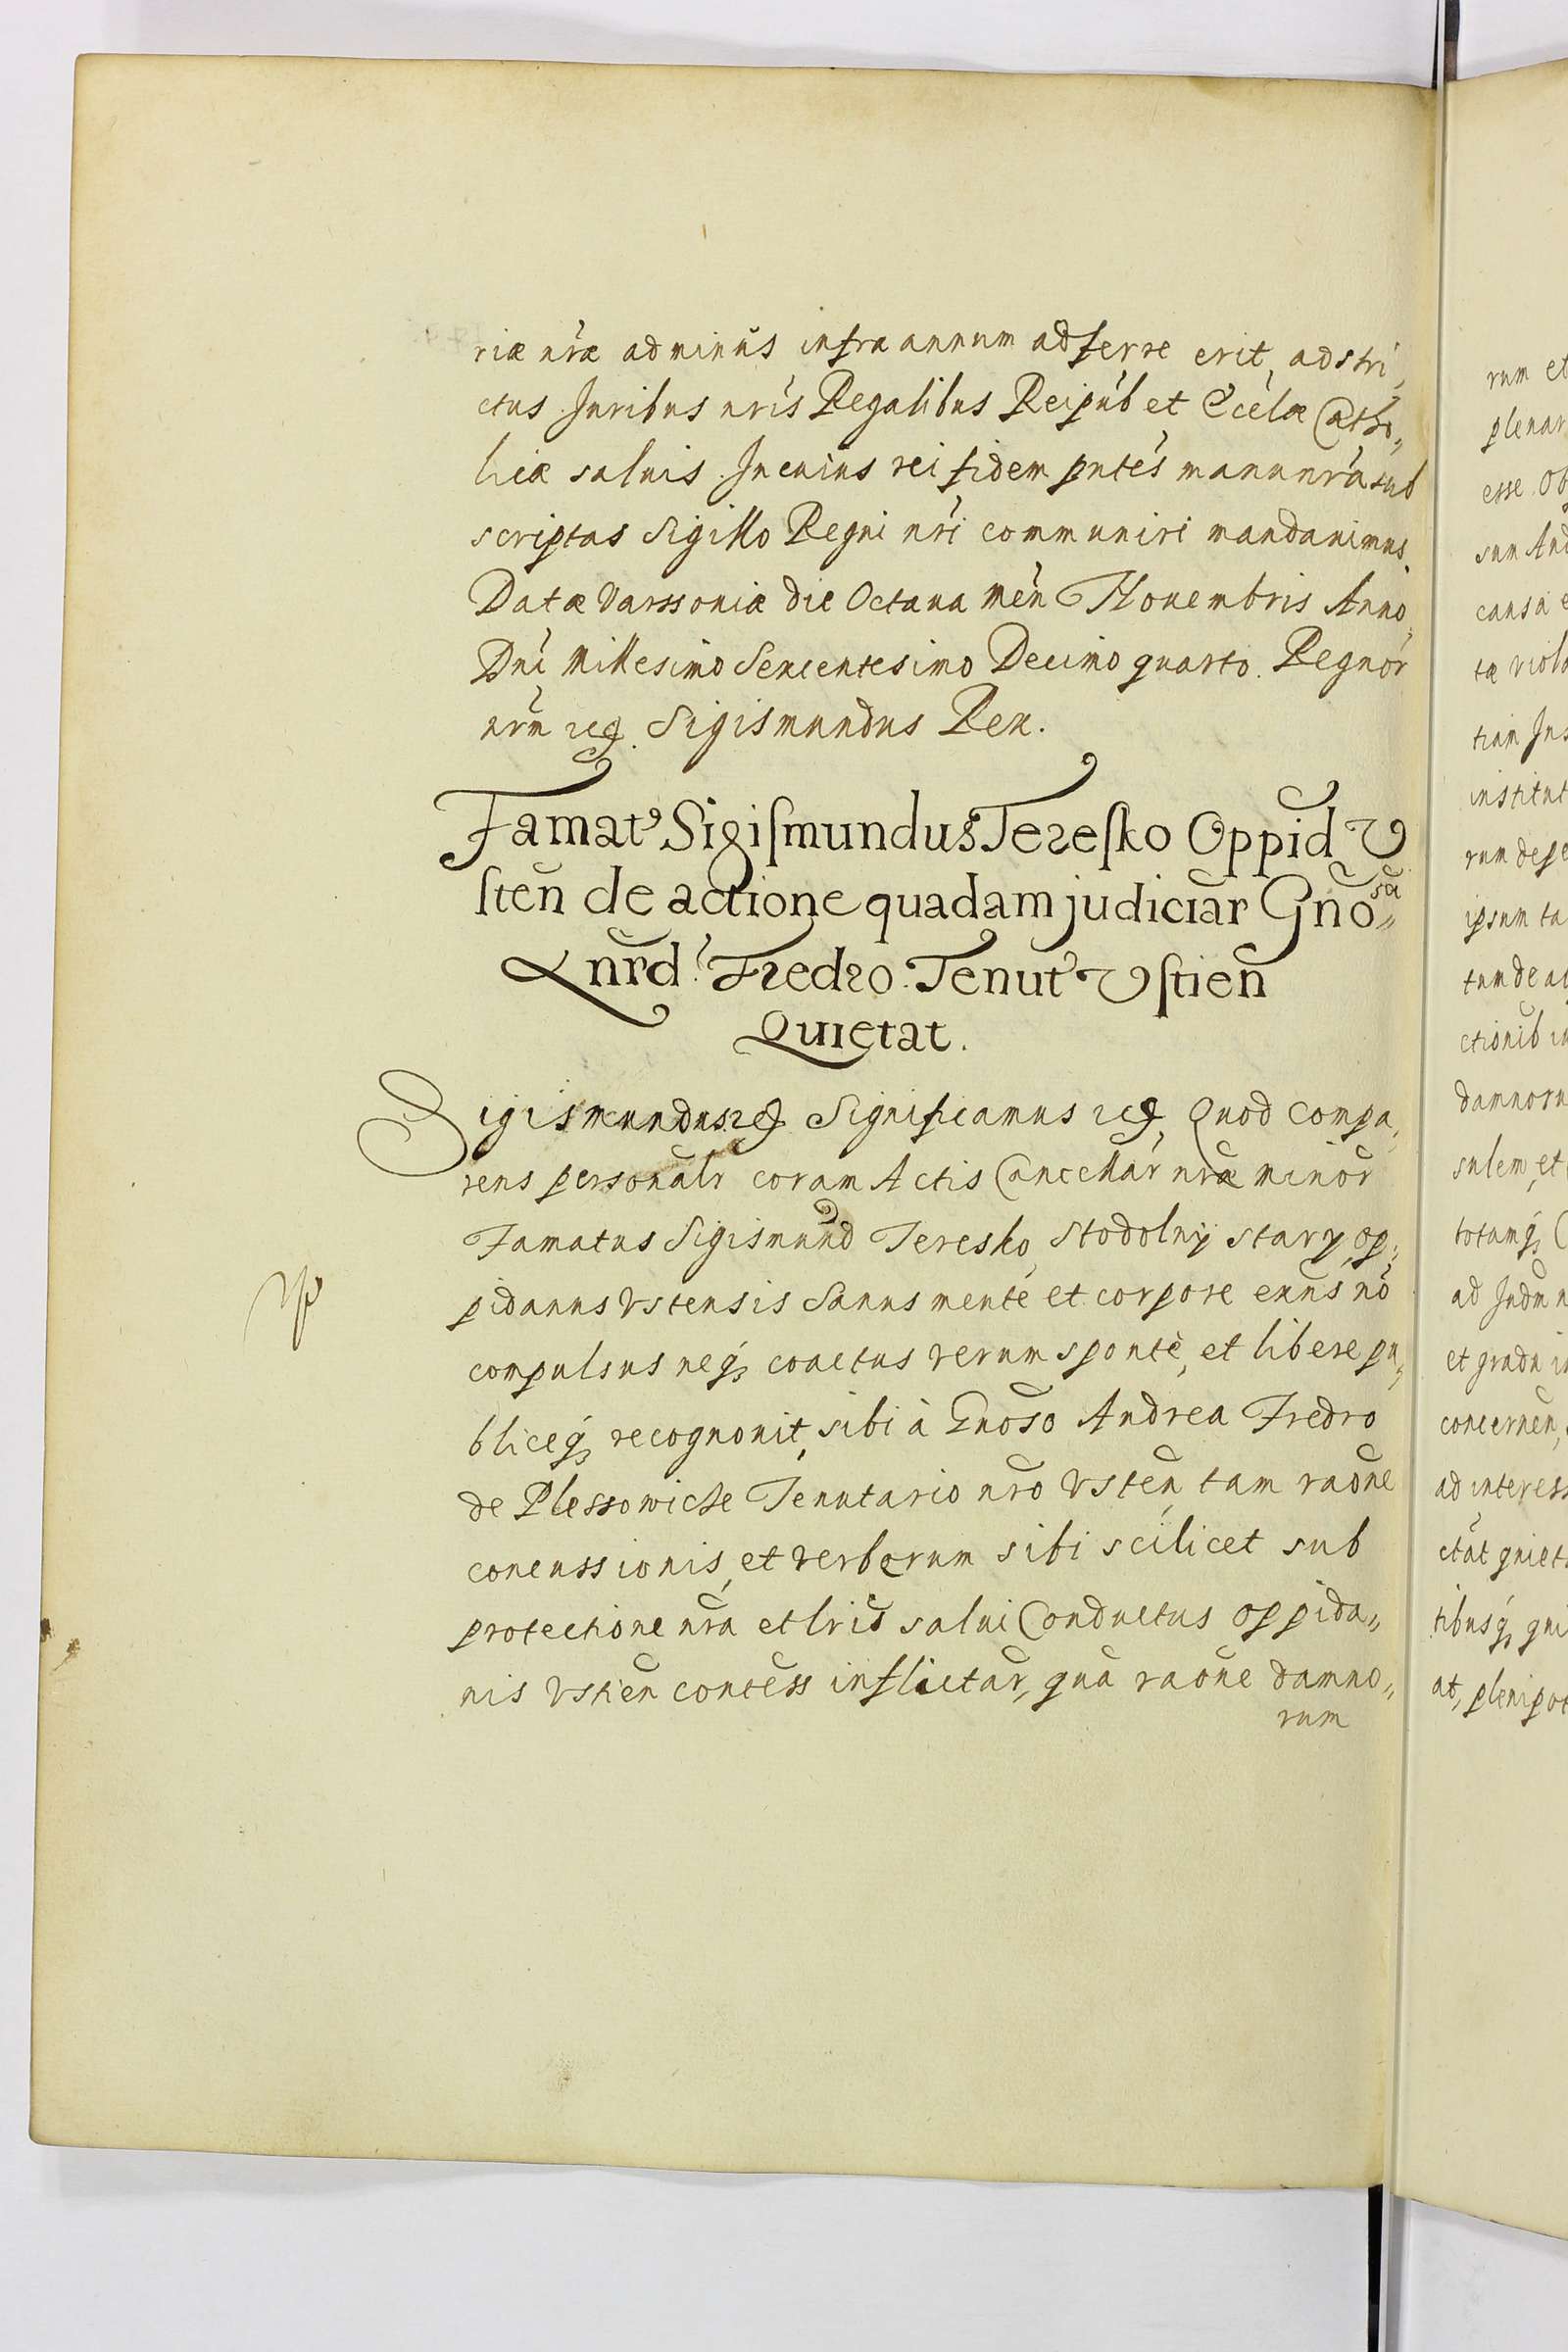 riæ nræ ad minus infra annum adferre erit, adstri,
ctus Juribus nris Regalibus Reipub et Ecclæ Catho,,
licæ saluis. In cuius rei fidem pntes manu nra sub
scriptas Sigillo Regni nri communiri mandauimus.
Datæ Varssoniæ die Octaua men Nouembris Anno,
Dni Millesimo Sexcentesimo Decimo quarto. Regnor
nrm etc. Sigismundus Rex.
Famat Sigiſmundus Tereſko Oppid V
ſten de actione quadam judiciar Gnoſu,,
Andr. Fredro. Tenut Vſtien
Quietat.
Sigismundus etc. Significamus etc, Quod compa,
rens personalr coram Actis Cancellar nræ minor
Famatus Sigismund Teresko, Stodolny stary, op,,
pidanus Vstensis Sanus mente et corpore exns no
compulsus neq, coactus verum sponte, et libere pu,,
bliceq, recognouit, sibi à Gnoso Andrea Fredro
de Plessowicze Tenutario nro Vsten, tam raone
concussionis, et verberum sibi scilicet sub
protectione nra et lris salui Conductus oppida,,
nis Vstien contess inflictar, qua raone damno,,
rum
rum et
plenar
esse. Ob
sum And
causa e
tæ viola
tiam Jus
institut
rum depe
ipsum ta
tum de ac
ctionib in
damnoru
sulem, et
totamq, C
ad Judm n
et gradu in
concernen,
ad interess
ctat quiet
tibusq, qui
at, plenipot